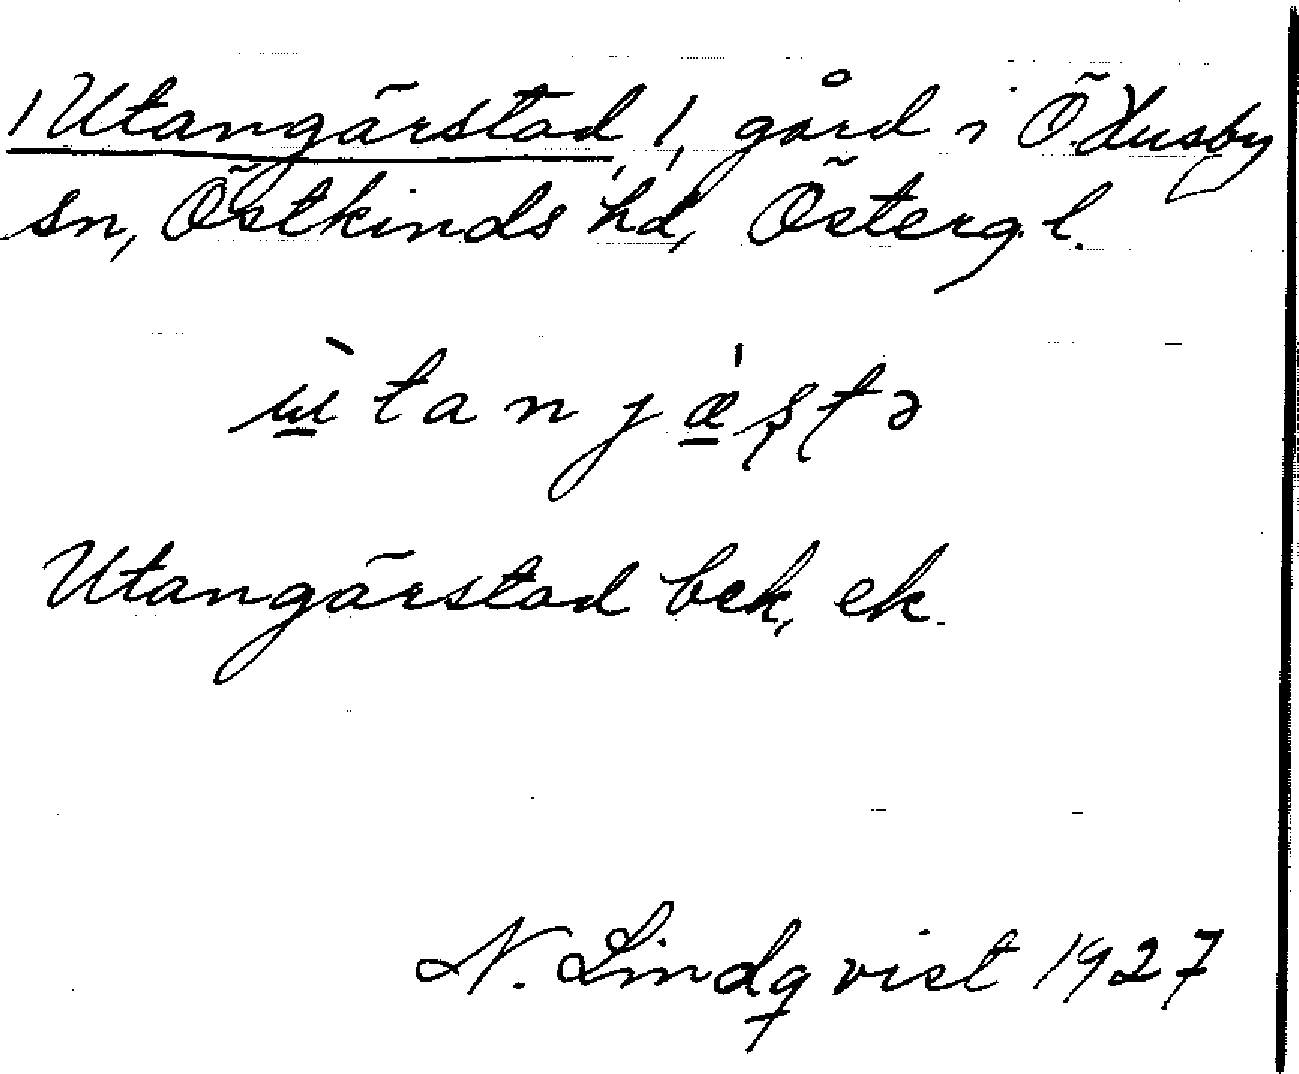 /Utangärstad/, gård i Ö. Husby
sn, Östkinds hd, Östergl.
ùtanjæ̀ștə
Utangärstad bek, ek.
N. Lindqvist 1927